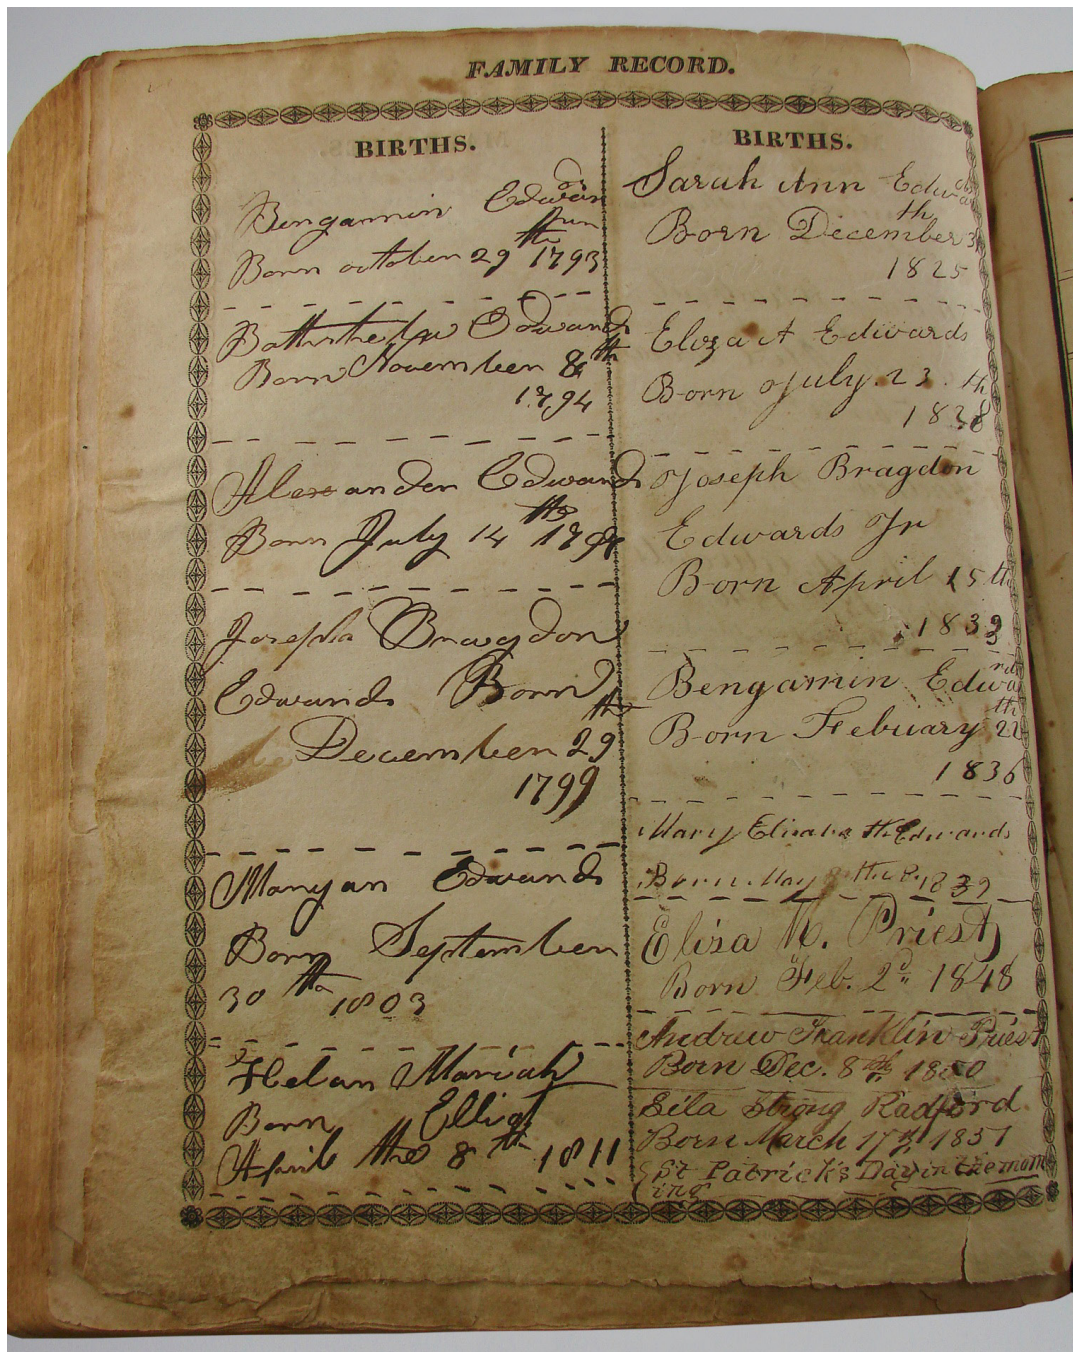 FAMILY RECORD.
BIRTHS.
Bengamin Edwards Jun
Born october 29th 1793
Edwards
Born November 8th
1794
Alexander Edwards
Born July 14th
Joseph Bragdon
Edwards Born
December 29th
1799
Maryan Edwards
Born September
30th 1803
Helan Mariah
Born Elliot
April the 8th 1811
BIRTHS.
Sarah Ann Edwards
Born December th
1825
Eloza A Edwards
Born July. 23.th
1838
Joseph Bragdon
Edwards Jr
Born April 15th
Bengamin Edwards
Born Febuary 22th
1836
Mary Elizabeth Edwards
Born May 8th
Eliza M. Priest
Born Feb. 2d 1848
Andraw Franklin Priest
Born Dec. 8th 1850
Strong Radford
Born March 17th 1851
St Patrick's Day in the morn
ing